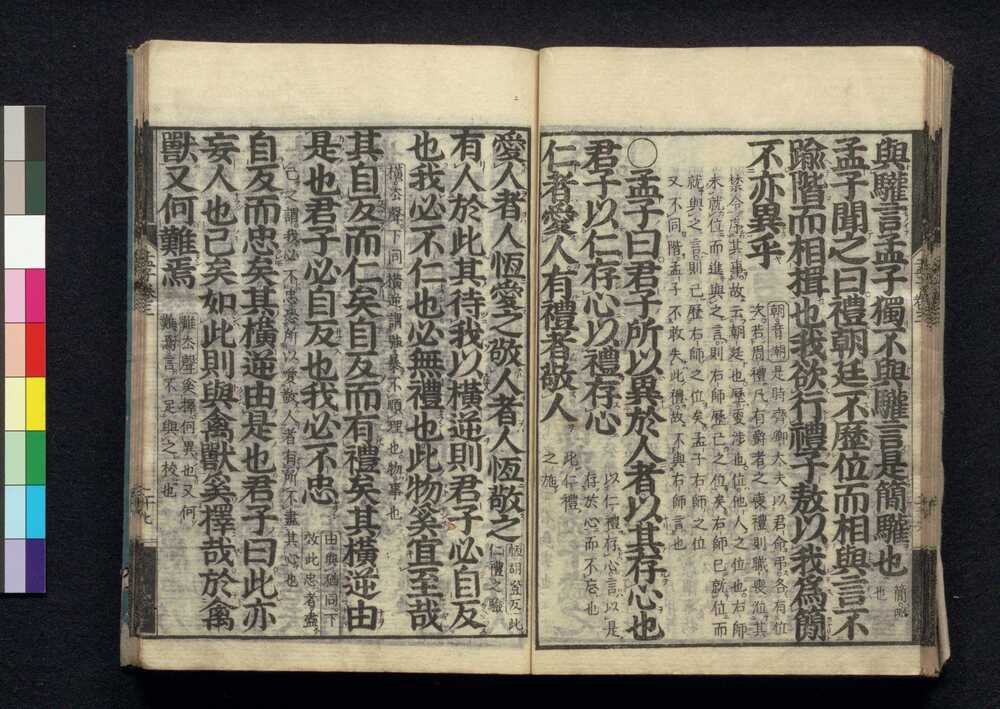 與驩言孟子獨不與驩言是簡驩也 簡略也
孟子聞之曰禮朝廷不歷位而相與言不
踰階而相揖也我欲行禮子敖以我爲簡
不亦異乎 朝音朝 是時齊卿大夫以君命弔各有位
次若周禮凡有爵者之喪禮則職喪涖其
禁令序其事故云朝廷也歷更涉也位他人之位也右師
未就位而進與之言則右師歷己之位矣右師已就位而
就與之言則己歷右師之位矣孟子右師之位
又不同階孟子不敢失此禮故不與右師言也
〇孟子曰君子所以異於人者以其存心也
君子以仁存心以禮存心 以仁禮存心言以是
存於心而不忘也
仁者愛人有禮者敬人 此仁禮
之施
愛人者人恆愛之敬人者人恆敬之 恆胡登反此
仁禮之驗
有人於此其待我以橫逆則君子必自反
也我必不仁也必無禮也此物奚宜至哉
橫去聲下同 橫逆謂強暴不順理也物事也
其自反而仁矣自反而有禮矣其橫逆由
是也君子必自反也我必不忠 由與猶同下
效此忠者盡
己之謂我必不忠恐所以愛敬人者有所不盡其心也
自反而忠矣其橫逆由是也君子曰此亦
妄人也已矣如此則與禽獸奚擇哉於禽
獸又何難焉 難去聲奚擇何異也又何
難焉言不足與之校也